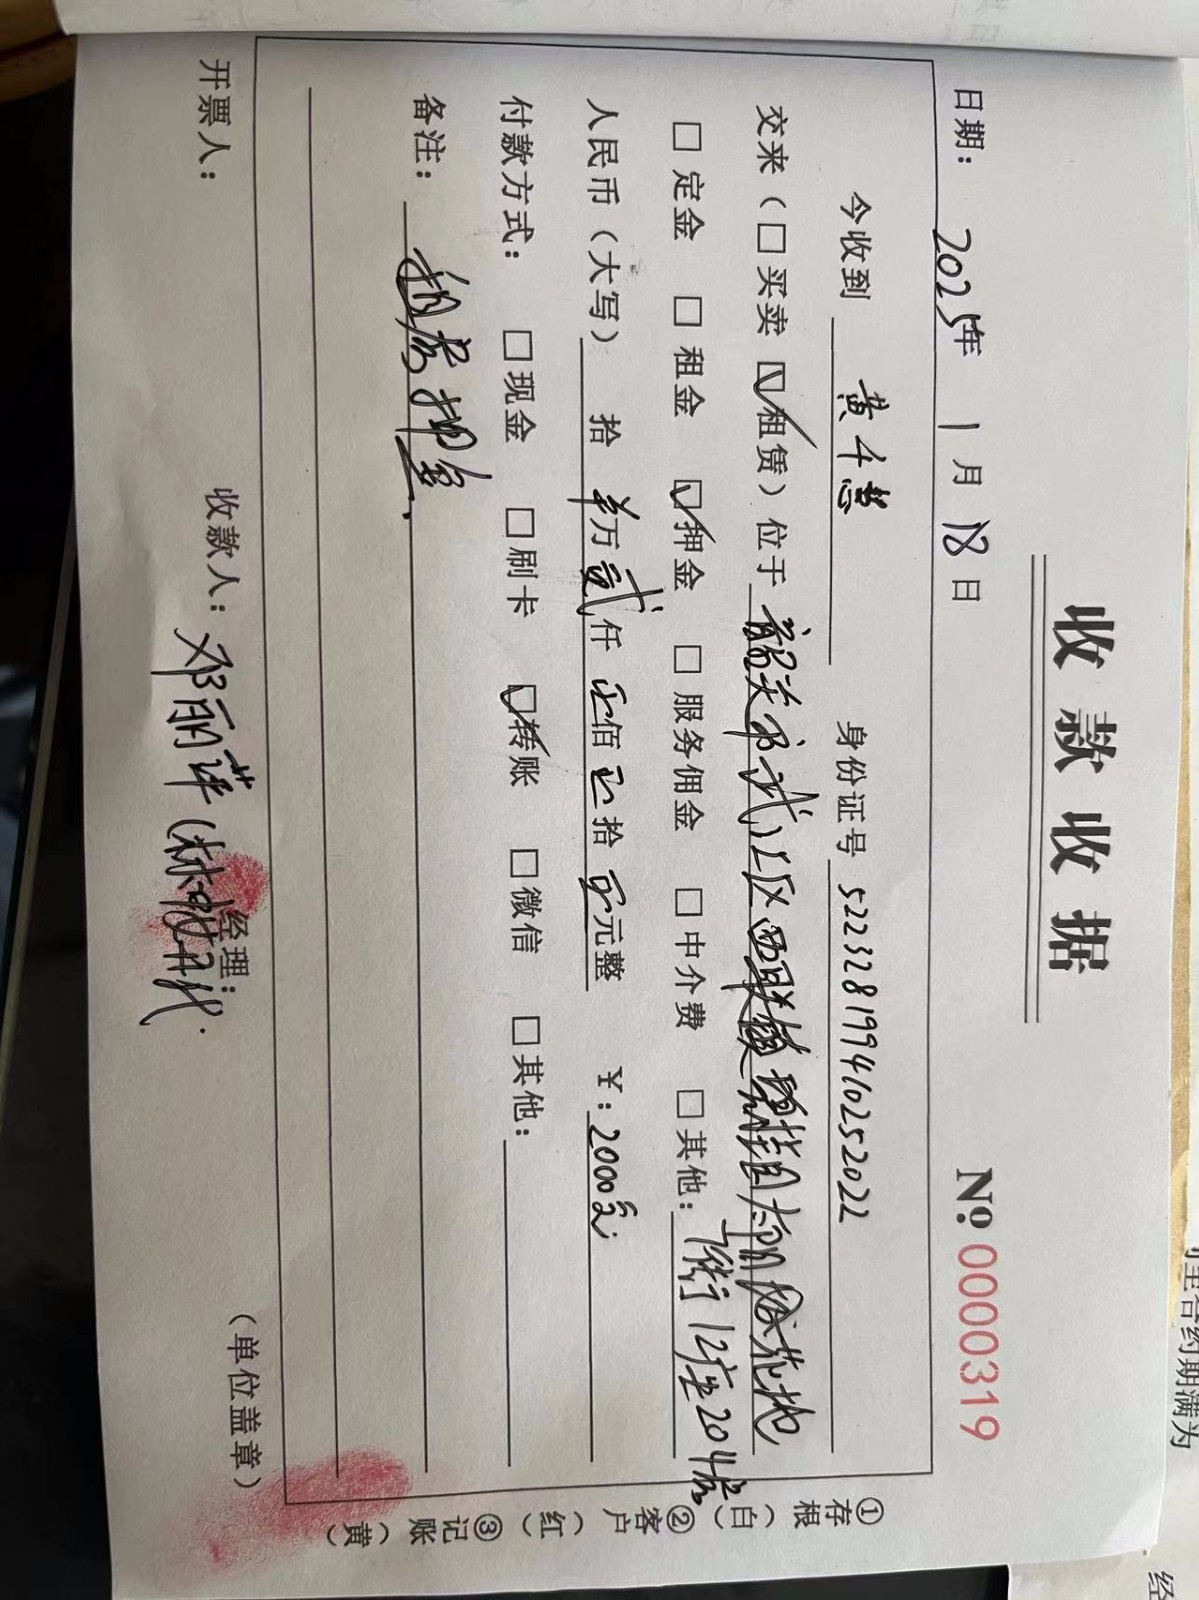 收款收据
日期： 2025年 1月 18日 No. 0000319
今收到 黄千慧 身份证号 522328199410252022
交来（□买卖 ☑租赁）位于 韶关市武江区西联镇 花地
□定金 □租金 ☑押金 □服务佣金 □中介费 □其他： 街12座204房
人民币（大写） 拾 万 贰仟 佰 拾 元整 ￥：2000元
付款方式： □现金 □刷卡 ☑转账 □微信 □其他：
备注： 租房押金.
开票人： 收款人：邓丽萍（林 代） 经理： （单位盖章）
①存根（白）②客户（红）③记账（黄）
约期满为
经